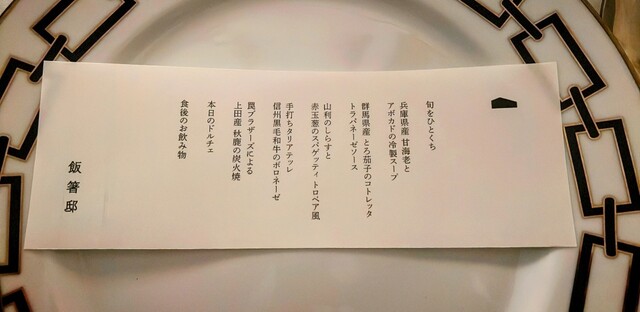 旬をひとくち
兵庫県産 甘海老と
アボカドの冷製スープ
群馬県産 とろ茄子のコトレッタ
トラパネーゼソース
山利のしらすと
赤玉葱のスパゲッティ トロペア風
手打ちタリアテッレ
信州黒毛和牛のボロネーゼ
罠ブラザーズによる
上田産 秋鹿の炭火焼
本日のドルチェ
食後のお飲み物
飯箸邸